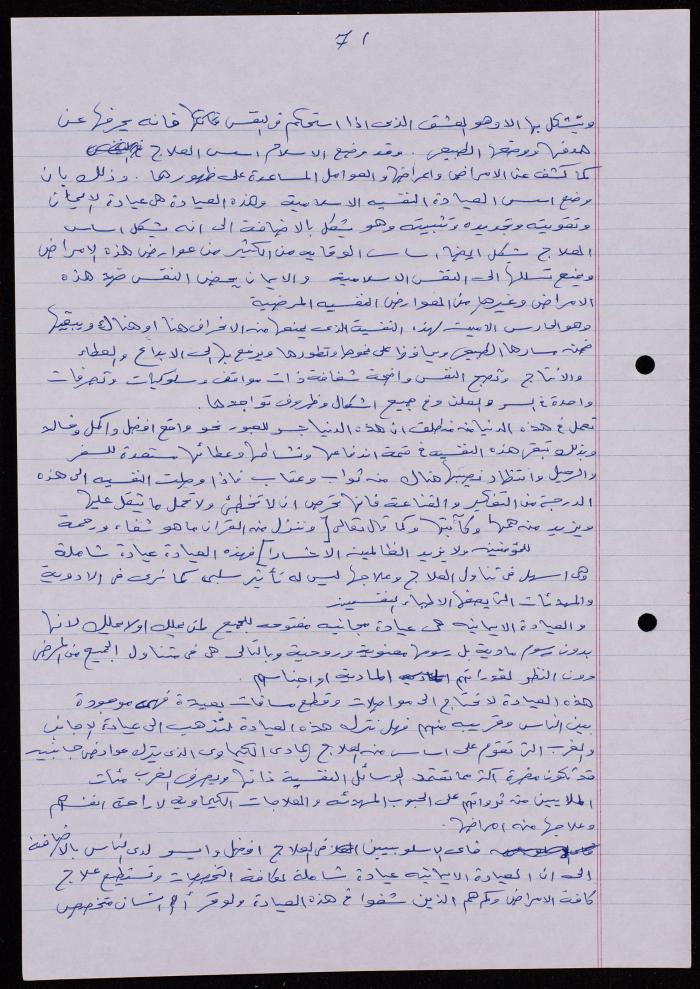 71
ويتشكل بها الا وهو العشق الذي اذا استحكم في النفس فانه يحرفها عن
هدفها ووضعها الطبيعي . وقد وضع الاسلام اسس العلاج
كما كشف عن الامراض واعراضها والعوامل المساعدة على ظهورها . وذلك بان
وضع اسس العيادة النفسيه الاسلامية وهذه العيادة هي عيادة الايمان
وتقويته وتجديده وتثبيته وهو يشكل بالاضافة الى انه يشكل اساس
العلاج يشكل ايضا اساس الوقايه من الكثير من عوارض هذه الامراض
ويمنع تسللها الى النفس الاسلامية والايمان يحصن النفس ضد هذه
الامراض وغيرها من العوارض النفسيه المرضية
وهو الحارس الامين لهذه النفسية الذي يمنعها من الانحراف هنا او هناك ويبقيها
ضمن مسارها الطبيعي ويحافظ على نموها وتطورها ويدفع بها الى الابداع والعطاء
والانتاج وتصبح النفس واضحة شفافة ذات مواقف وسلوكيات وتصرفات
واحدة في السر والعلن وفي جميع اشكال وظروف تواجدها .
تعمل في هذه الدنيا من منطلق ان هذه الدنيا جسر للعبور نحو واقع افضل واكمل وخالد
وبذلك تبقى هذه النفسية في قمة اندفاعها ونشاطها وعطائها مستعدة للسفر
والرحيل وانتظار نصيبها هناك من ثواب وعقاب فاذا وصلت النفسيه الى هذه
الدرجة من التفكير والقناعة فانها تحرص ان لا تخطئ ولا تحمل ما يثقل عليها
ويزيد من همها وكآبتها وكما قال تعالى [ وننزل من القران ما هو شفاء ورحمة
للمؤمنين ولا يزيد الظالمين الا خسارا ] فهذه العيادة عيادة شاملة
وهي اسهل في تناول العلاج وعلاجها ليس له تأثير سلبي كما نرى في الادوية
والمهدئات التي يصفها الاطباء النفسيين
والعيادة الايمانيه هي عيادة مجانيه مفتوحه للجميع لمن يملك او لا يملك لانها
بدون رسوم مادية بل رسومها معنوية وروحية وبالتالي هي في متناول الجميع من المرضى
دون النظر لقدراتهم المادية او اجناسهم .
هذه العيادة لا تحتاج الى مواصلات وقطع مسافات بعيدة فهي موجودة
بين الناس وقريبه منهم فهل نترك هذه العيادة لنذهب الى عيادة الاجانب
والغرب التي تقوم على اساس من العلاج المادي الكيماوي الذي يترك عوارض جانبيه
قد تكون مضرة اكثر مما تعتمد الوسائل النفسية ذاتها ويصرف الغرب مئات
الملايين من ثرواتهم على الحبوب المهدئه والعلاجات الكيماويه لاراحة انفسهم
وعلاجها من امراضها .
فاي الاسلوبين في العلاج افضل وايسر لدى الناس بالاضافة
الى ان العيادة الايمانيه عيادة شاملة لكافة التخصصات وتستطيع علاج
كافة الامراض وكم هم الذين شفوا في هذه العيادة ولو قرر أي انسان متخصص